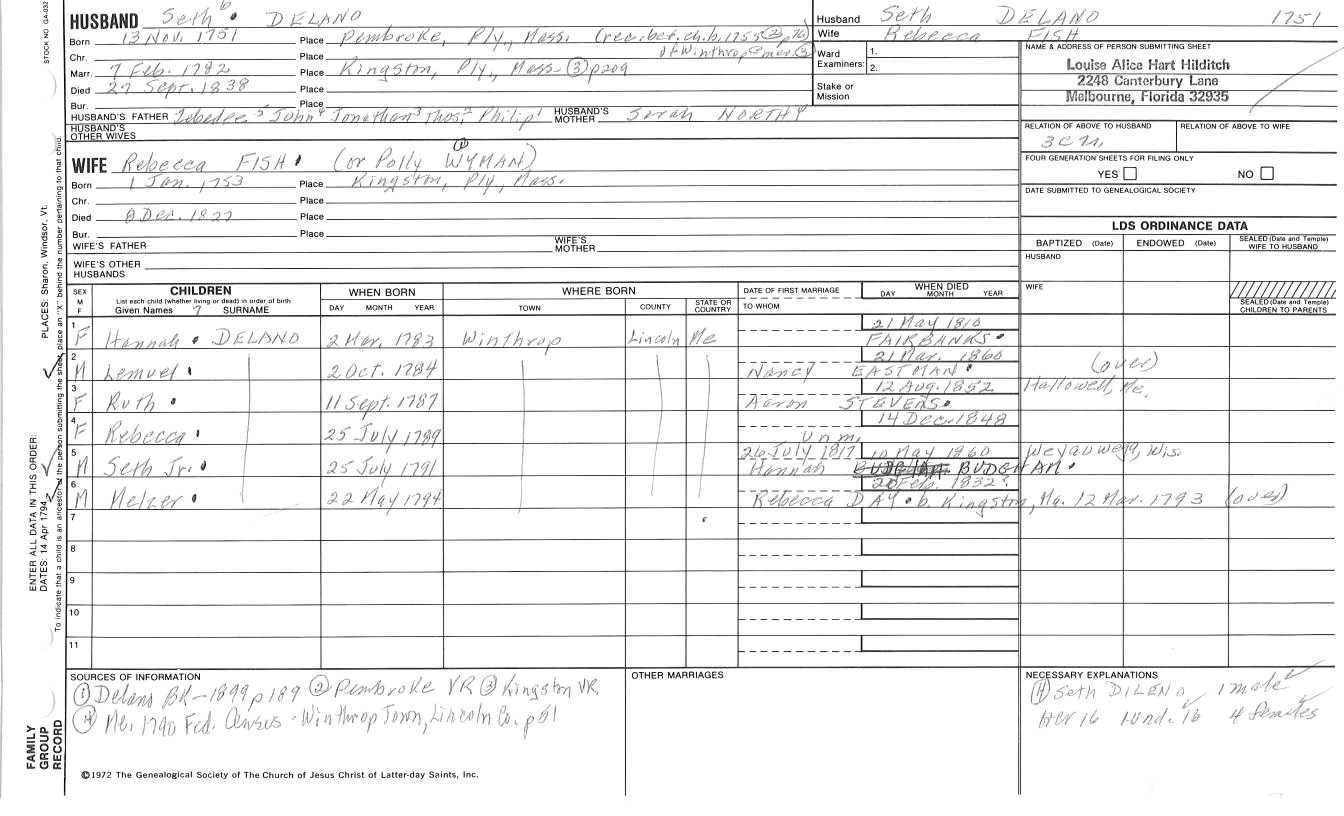 STOCK NO. GA-032
HUSBAND Seth 6 DELANO
Born 13 Nov. 1751 Place Pembroke, Ply., Mass. (rec. bef. ch. b. 1755 (2) p 76)
Chr. Place of Winthrop @ mar. (3)
Marr. 7 Feb. 1782 Place Kingston, Ply, Mass. (3) p209
Died 27 Sept. 1838 Place
Bur. Place
HUSBAND'S FATHER Zebedee 5 John 4 Jonathan 3 Thos. 2 Philip 1 HUSBAND'S MOTHER Sarah NORTHY
HUSBAND'S OTHER WIVES
WIFE Rebecca FISH (or Polly WYMAN) (1)
Born 1 Jan. 1753 Place Kingston, Ply, Mass.
Chr. Place
Died Dec. 1827 Place
Bur. Place
WIFE'S FATHER WIFE'S MOTHER
WIFE'S OTHER HUSBANDS
Husband Seth DELANO 1751
Wife Rebecca FISH
Ward Examiners: 1. 2.
Stake or Mission
NAME & ADDRESS OF PERSON SUBMITTING SHEET
Louise Alice Hart Hilditch
2248 Canterbury Lane
Melbourne, Florida 32935
RELATION OF ABOVE TO HUSBAND RELATION OF ABOVE TO WIFE
FOUR GENERATION SHEETS FOR FILING ONLY
YES NO
DATE SUBMITTED TO GENEALOGICAL SOCIETY
LDS ORDINANCE DATA
BAPTIZED (Date) ENDOWED (Date) SEALED (Date and Temple) WIFE TO HUSBAND
HUSBAND
WIFE
SEALED (Date and Temple) CHILDREN TO PARENTS
SEX M F CHILDREN WHEN BORN WHERE BORN DATE OF FIRST MARRIAGE WHEN DIED
List each child (whether living or dead) in order of birth
Given Names 7 SURNAME DAY MONTH YEAR TOWN COUNTY STATE OR COUNTRY TO WHOM DAY MONTH YEAR
1 F Hannah DELANO 2 Mar. 1783 Winthrop Lincoln Me 21 May 1810
FAIRBANKS
2 M Lemuel 2 Oct. 1784 21 Mar. 1860 (over)
Nancy EASTMAN
3 F Ruth 11 Sept. 1787 12 Aug. 1852 Hallowell, Me.
Aaron STEVENS
4 F Rebecca 25 July 1789 14 Dec. 1848
Unm.
5 M Seth Jr. 25 July 1791 26 July 1817 10 May 1860 Weyauwega, Wis.
Hannah BUDGHAM
6 M Melzer 22 May 1794 20 Feb. 1832?
Rebecca DAY b. Kingston, Ma. 12 Mar. 1793 (over)
7
8
9
10
11
SOURCES OF INFORMATION
(1) Delano BK - 1899 p 189 (2) Pembroke VR (3) Kingston VR
(4) Me. 1790 Fed. Census - Winthrop Town, Lincoln Co. p 51
OTHER MARRIAGES
NECESSARY EXPLANATIONS
(4) Seth DILENO 1 male
over 16 1 und. 16 4 females
©1972 The Genealogical Society of The Church of Jesus Christ of Latter-day Saints, Inc.
FAMILY GROUP RECORD
ENTER ALL DATA IN THIS ORDER:
DATES: 14 Apr 1794
PLACES: Sharon, Windsor, Vt.
To indicate that a child is an ancestor of the person submitting the sheet, place an "X" behind the number pertaining to that child.